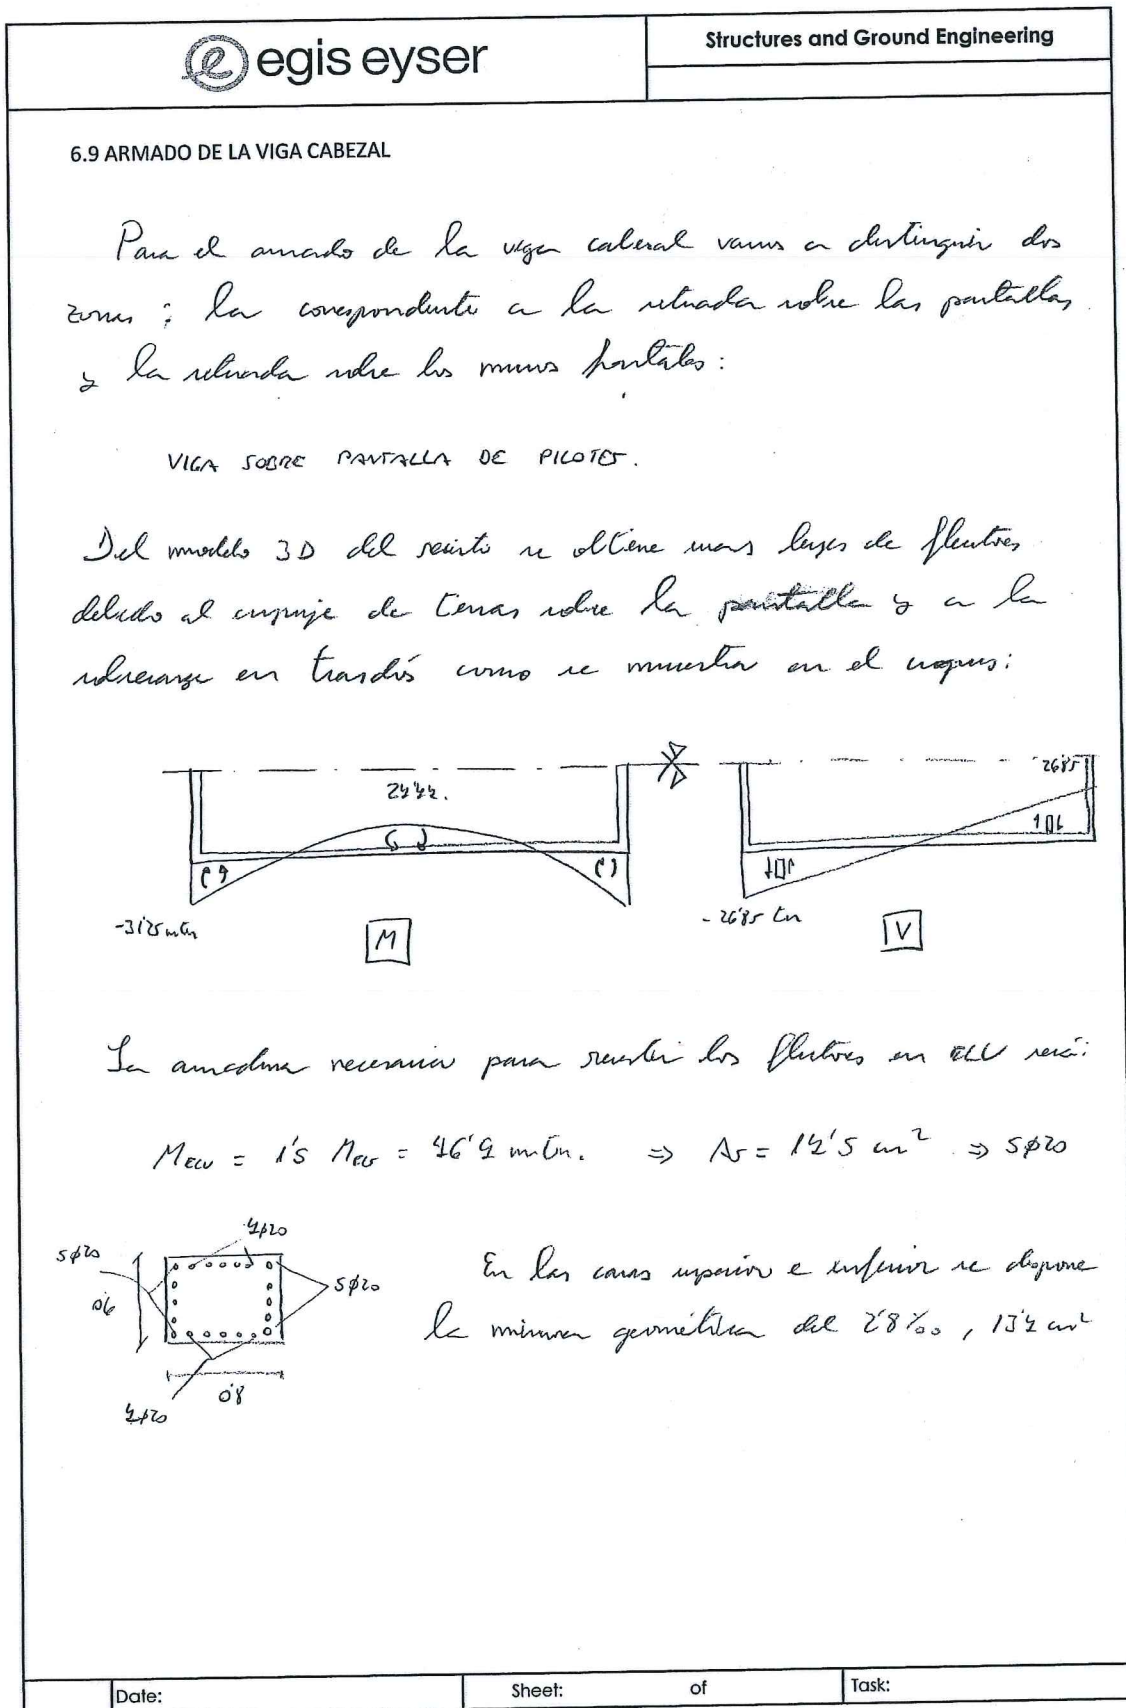 egis eyser
Structures and Ground Engineering
6.9 ARMADO DE LA VIGA CABEZAL
Para el armado de la viga cabezal vamos a distinguir dos
zonas; la correspondiente a la situada sobre las pantallas
y la situada sobre los muros frontales:
VIGA SOBRE PANTALLA DE PILOTES.
Del modelo 3D del recinto se obtiene unas leyes de flectores
debido al empuje de tierras sobre la pantalla y a la
sobrecarga en trasdós como se muestra en el croquis:
24'42.
26'85
-31'25 mtn
M
-26'85 tn
V
La armadura necesaria para resistir los flectores en ELU será:
MELU = 1'5 MELS = 46'9 mtn. => As = 14'5 cm² => 5ϕ20
4ϕ20
5ϕ20
5ϕ20
0'6
En las caras superior e inferior se dispone
la mínima geométrica del 2'8‰, 13'4 cm²
0'8
4ϕ20
Date:
Sheet: of
Task: